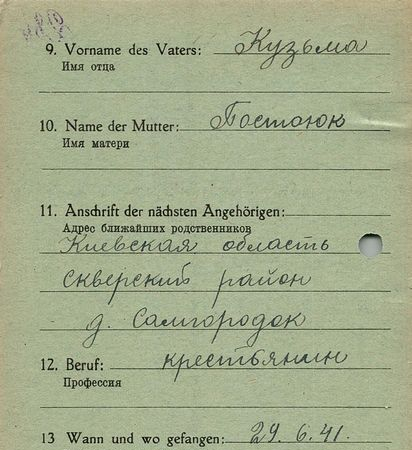 9. Vorname des Vaters: Кузьма
Имя отца
10. Name der Mutter: Постоюк
Имя матери
11. Anschrift der nächsten Angehörigen:
Адрес ближайших родственников
Киевская область
сквeрский район
д. Самгородок
12. Beruf: крестьянин
Профессия
13 Wann und wo gefangen: 29. 6. 41.